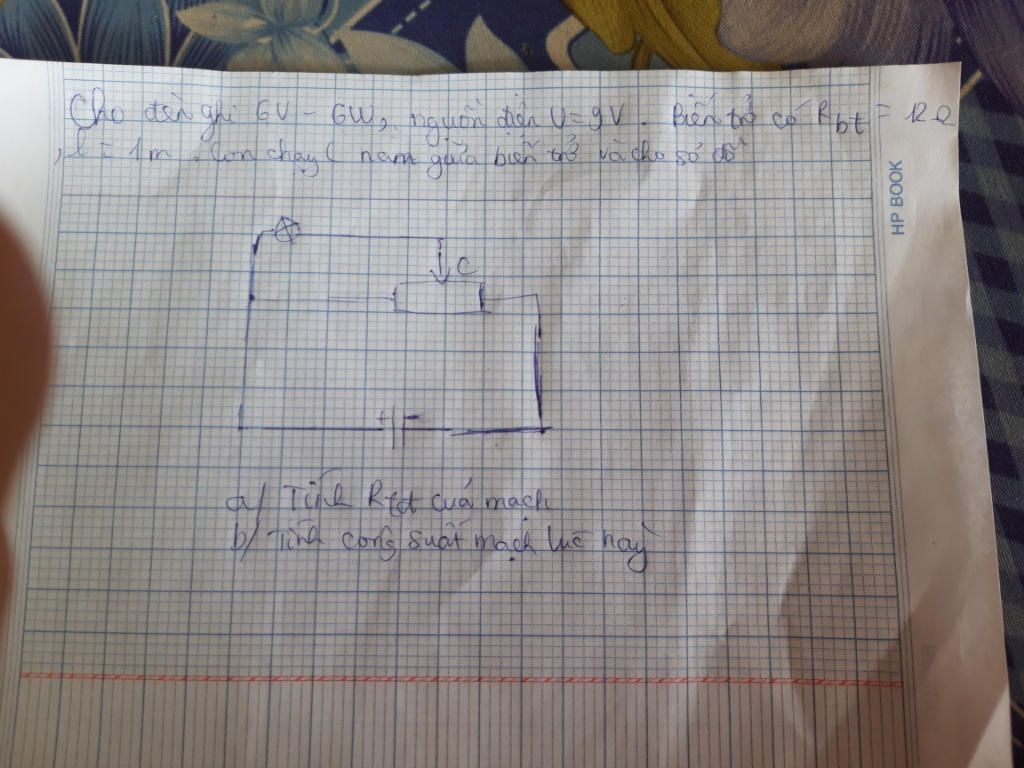 Cho đèn ghi 6V - 6W, nguồn điện U = 9V. Biến trở có Rbt = 12Ω
, l = 1m. Con chạy C nằm giữa biến trở và cho sơ đồ
C
+ -
a/ Tính Rtđ của mạch
b/ Tính công suất mạch lúc này
HP BOOK